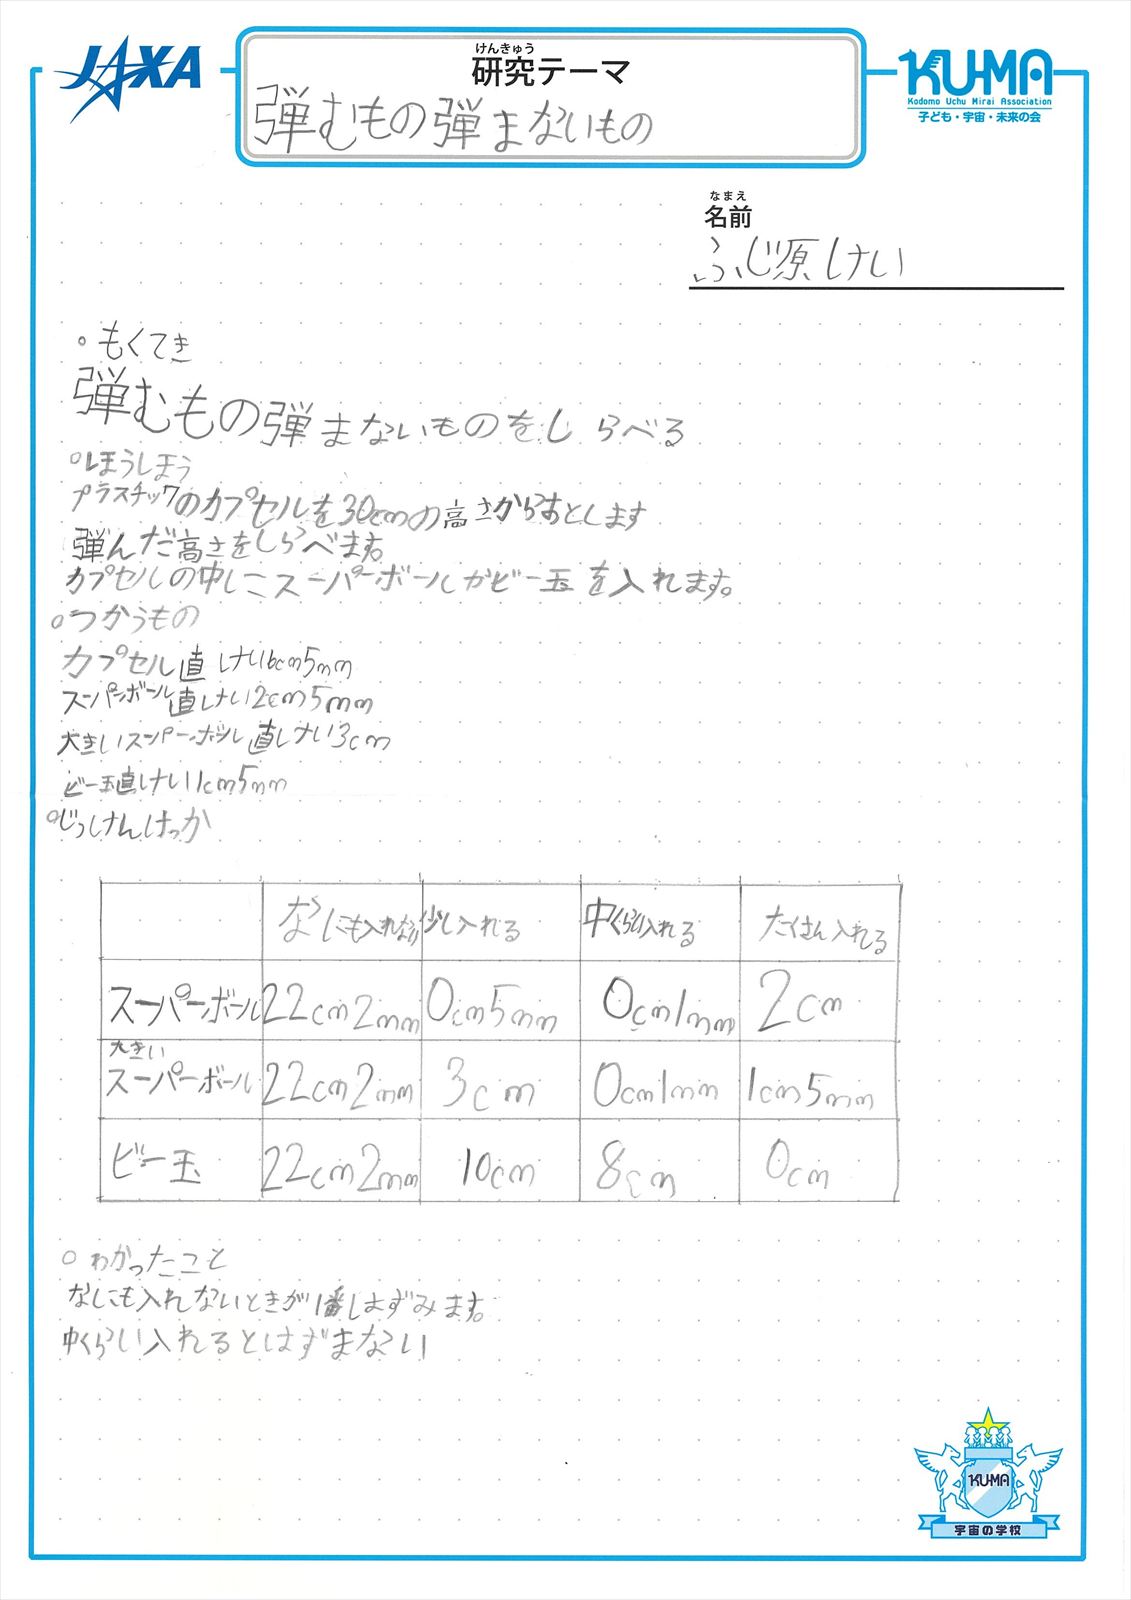 JAXA
けんきゅう
研究テーマ
弾むもの弾まないもの
KU-MA
Kodomo Uchu Mirai Association
子ども・宇宙・未来の会
なまえ
名前
ふじ原けい
。もくてき
弾むもの弾まないものをしらべる
。ほうほう
プラスチックのカプセルを30cmの高さからおとします
弾んだ高さをしらべます。
カプセルの中にスーパーボールかビー玉を入れます。
。つかうもの
カプセル直けい6cm5mm
スーパーボール直けい2cm5mm
大きいスーパーボール直けい3cm
ビー玉直けい1cm5mm
。じっけんけっか
なにも入れない 少し入れる 中くらい入れる たくさん入れる
スーパーボール 22cm2mm 0cm5mm 0cm1mm 2cm
大きい
スーパーボール 22cm2mm 3cm 0cm1mm 1cm5mm
ビー玉 22cm2mm 10cm 8cm 0cm
。わかったこと
なにも入れないときが1番はずみます。
中くらい入れるとはずまない
KU-MA
宇宙の学校